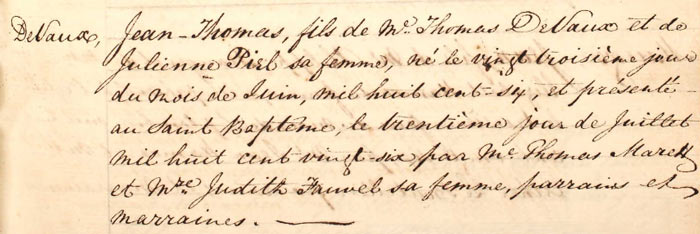 DeVaux, Jean-Thomas, fils de Mr. Thomas DeVaux et de
Julienne Piel sa femme, né le vingt troisième jour
du mois de Juin, mil huit cent-six, et présenté-
au Saint Baptême, le trentième jour de Juillet
mil huit cent vingt-six par Mr. Thomas Marett
et Mrse Judith Fauvel sa femme, parrains et
marraines.